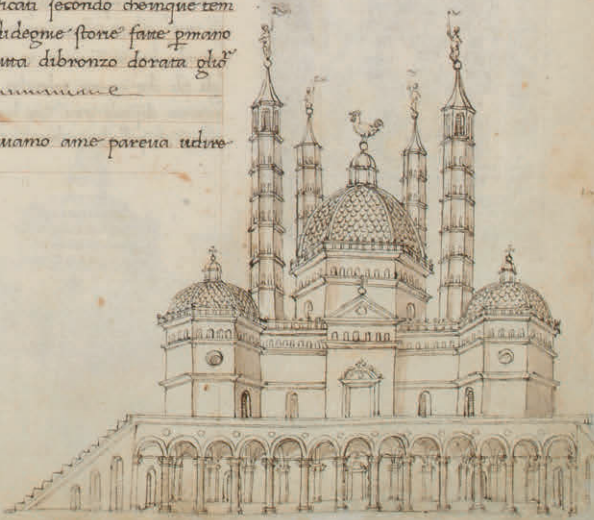 ficati secondo cheinque tem
di degnie storie fatte ꝑmano
utta dibronzo dorata
uamo ame pareua udire